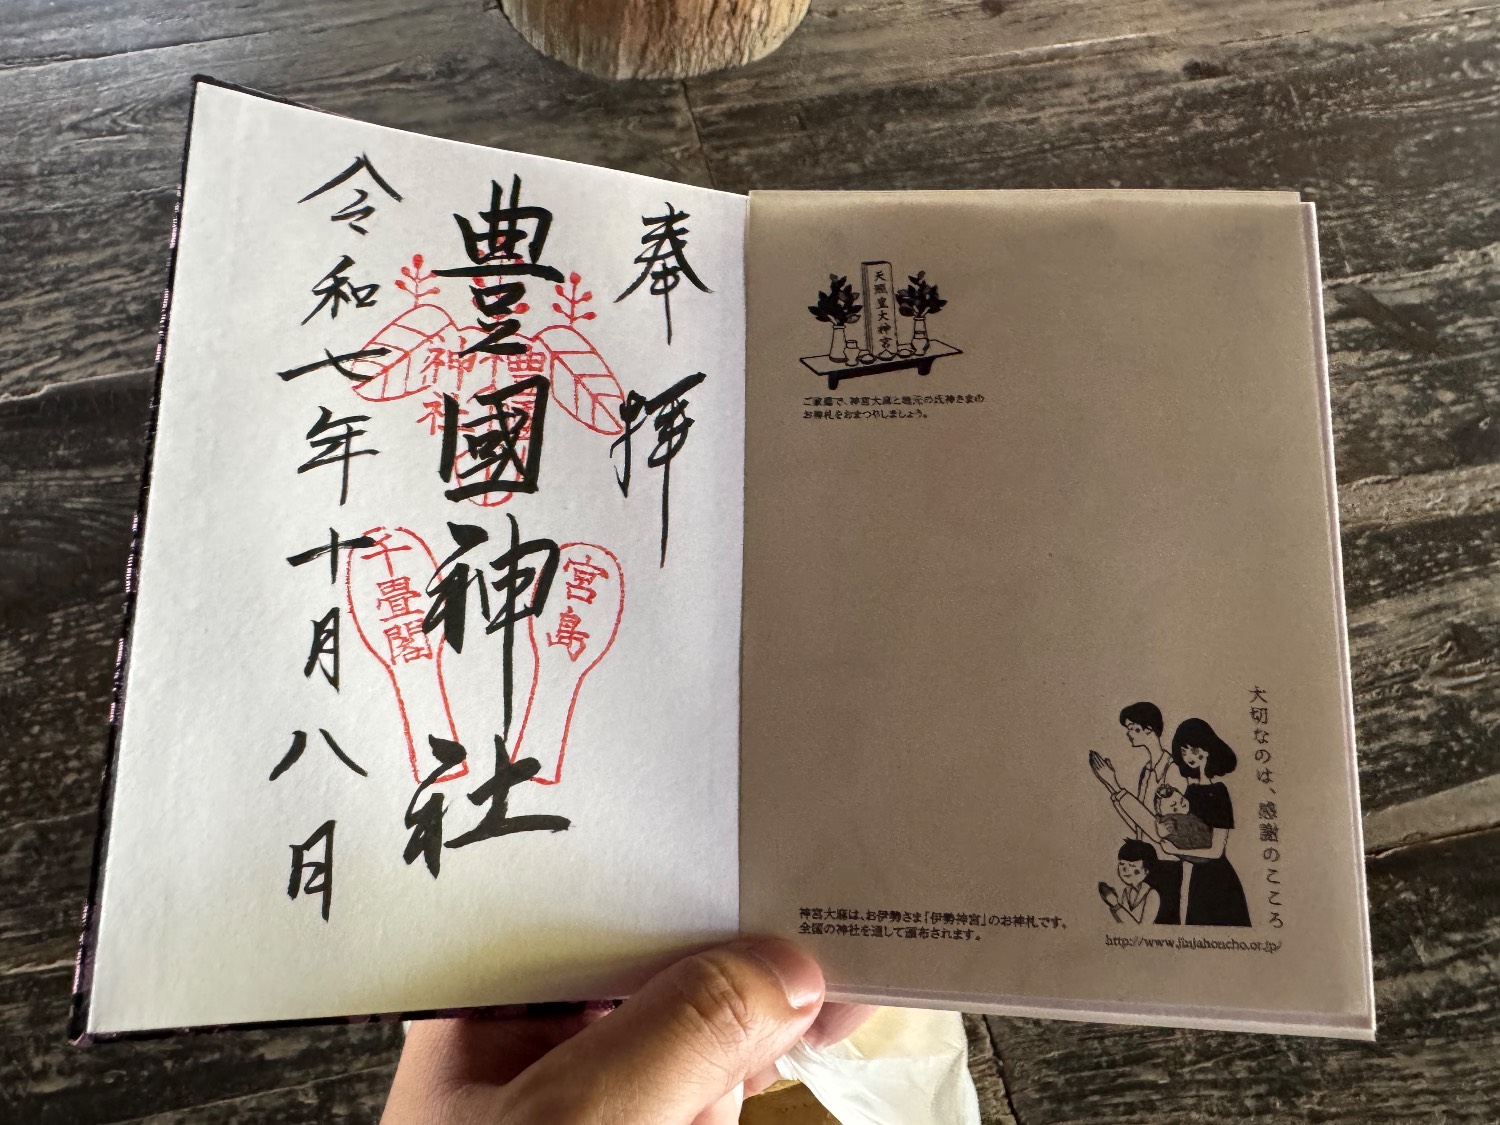 奉拝
豊國神社
令和七年十月八日
豊国
神社
宮島
千畳閣
天照皇大神宮
ご家庭で、神宮大麻と地元の氏神さまの
お神札をおまつりしましょう。
大切なのは、感謝のこころ
神宮大麻は、お伊勢さま「伊勢神宮」のお神札です。
全国の神社を通して頒布されます。
http://www.jinjahoncho.or.jp/